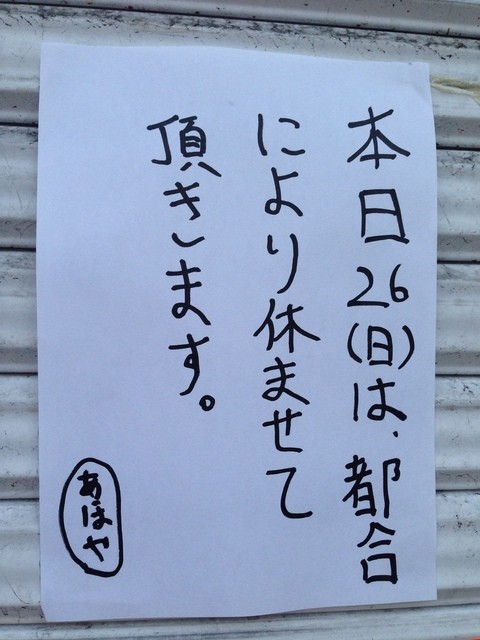 本日26(日)は、都合
により休ませて
頂きします。
あほや